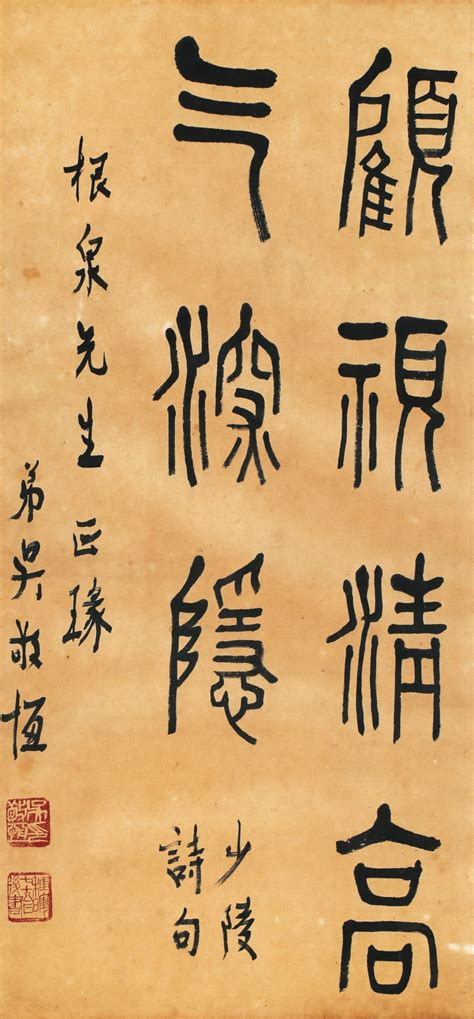 顧視清高
气深隱
少陵
詩句
根泉先生正瑑
弟吳敬恒